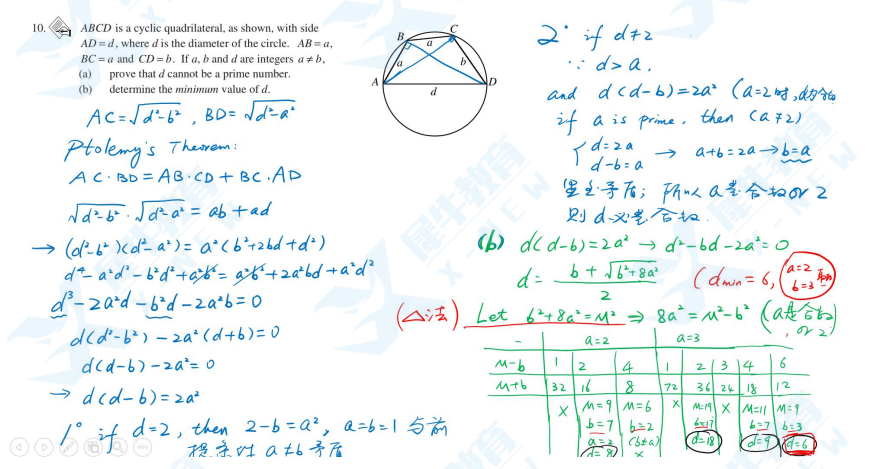 10. ABCD is a cyclic quadrilateral, as shown, with side
AD = d, where d is the diameter of the circle. AB = a,
BC = a and CD = b. If a, b and d are integers a ≠ b,
(a) prove that d cannot be a prime number.
(b) determine the minimum value of d.
A B C D a a b d
AC=√d²-b² , BD= √d²-a²
Ptolemy's Theorem:
AC·BD=AB·CD+BC·AD
√d²-b² · √d²-a² = ab+ad
→ (d²-b²)(d²-a²)= a²(b²+2bd+d²)
d⁴-a²d²-b²d²+a²b²= a²b²+2a²bd+a²d²
d³-2a²d-b²d-2a²b=0
d(d²-b²)-2a²(d+b)=0
d(d-b)-2a²=0
→ d(d-b)=2a²
1° if d=2, then 2-b=a², a=b=1 与前
提条件 a≠b 矛盾
2° if d≠2
∵ d>a,
and d(d-b)=2a² (a=2时,
if a is prime, then (a≠2)
{ d=2a
d-b=a → a+b=2a → b=a
矛盾; 所以 a是合数or 2
则 d 是合数.
(b) d(d-b)=2a² → d²-bd-2a²=0
d= b+√b²+8a² / 2 (dmin=6, a=2 b=3
(△法) Let b²+8a²=M² ⇒ 8a²=M²-b² (a是合数, or 2)
- a=2 a=3
M-b 1 2 4 1 2 3 4 6
M+b 32 16 8 72 36 24 18 12
X M=9 M=6 X M=19 X M=11 M=9
b=7 b=2 b=17 b=7 b=3
a=2 (b≠a) d=18 d=9 d=6
d=8 X